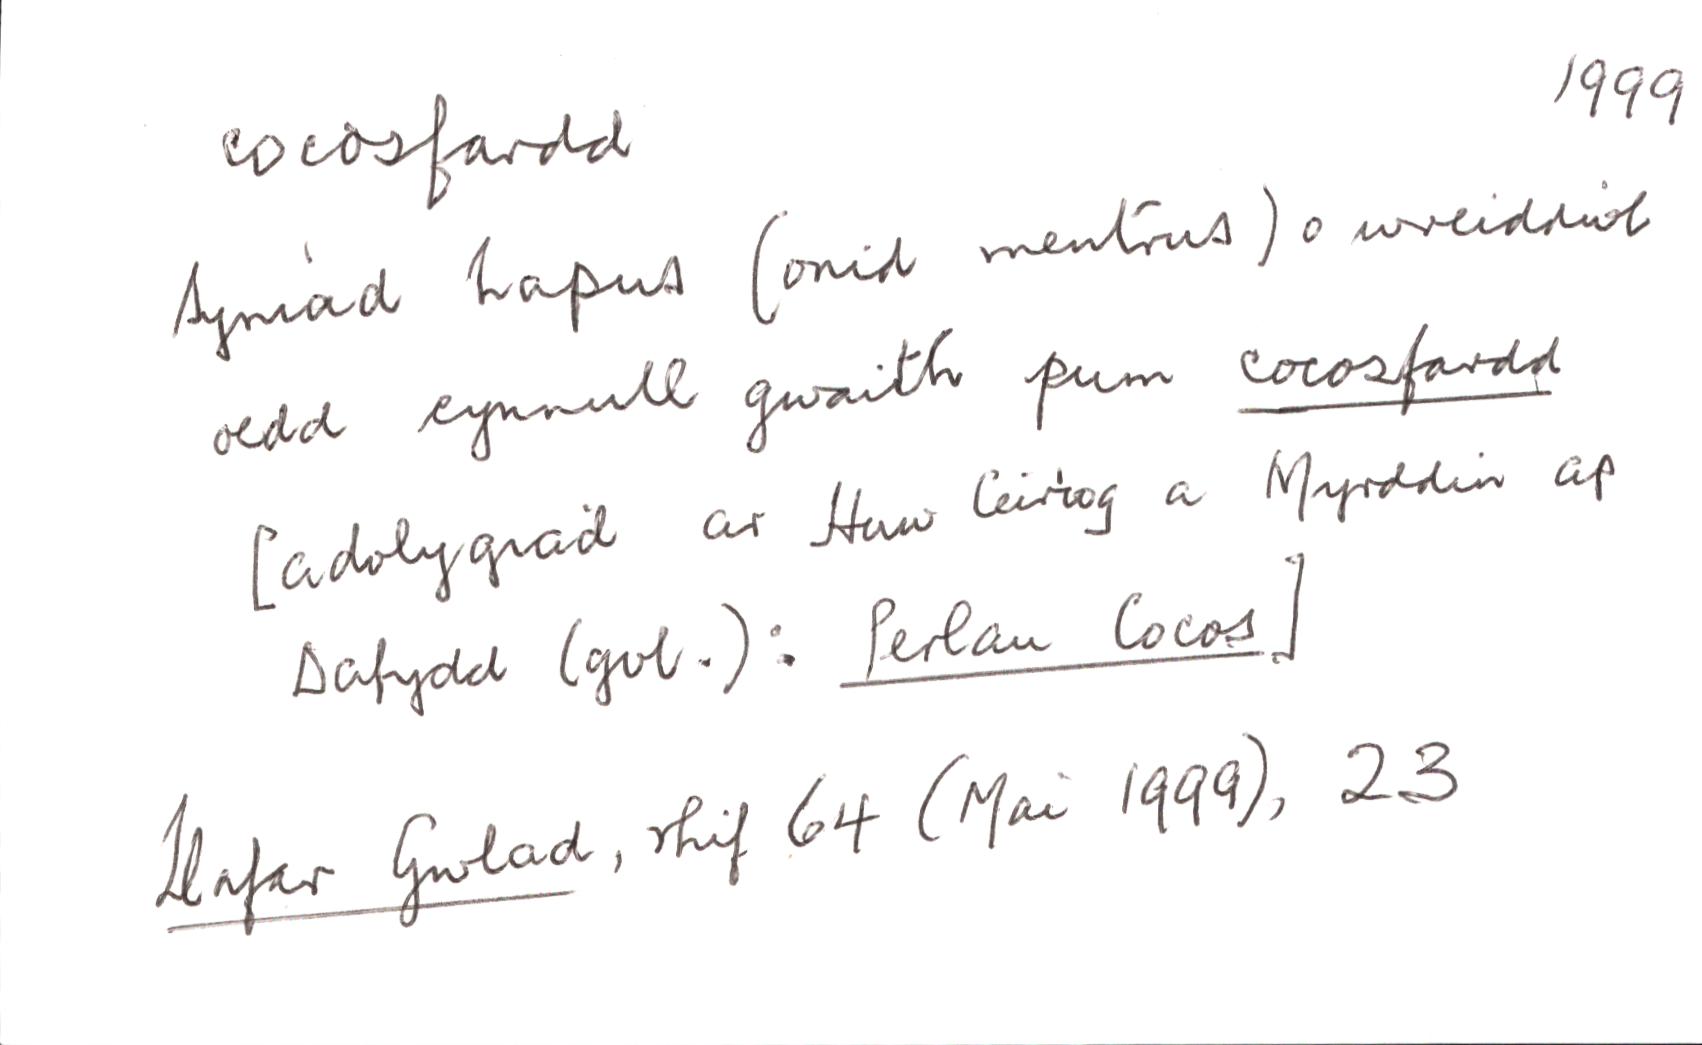 1999
cocosfardd
syniad hapus (onid mentrus) o wreiddiol
oedd cynnull gwaith pum cocosfardd
[adolygiad ar Huw Ceiriog a Myrddin ap
Dafydd (gol.): Perlau Cocos]
Llafar Gwlad, rhif 64 (Mai 1999), 23